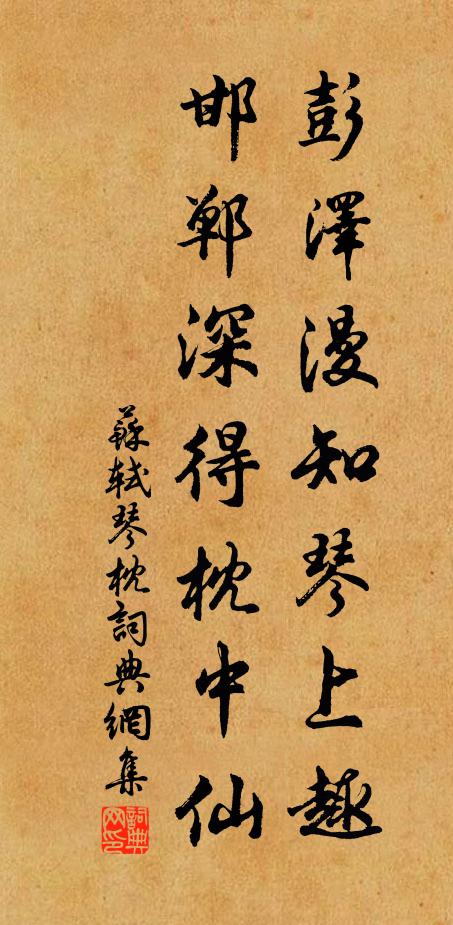 彭澤漫知琴上趣
邯鄲深得枕中仙
蘇軾琴枕詞典網集
詞典網印